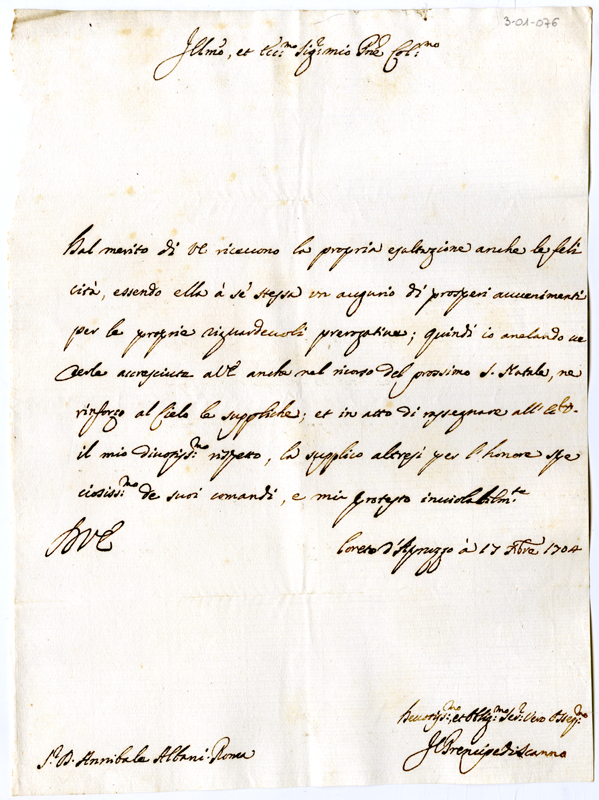 3-01-076
Illmo, et Ecc:mo Sig:r mio Prõe Col:mo
Dal merito di VE riceuono la propria esaltazione anche le feli
cità, essendo ella à sè stessa un augurio di prosperi auuenimenti
per le proprie riguardeuoli prerogatiue; quindi io anelando ue
derle accresciute all'VE anche nel ricorso del prossimo S. Natale, ne
rinforzo al Cielo le suppliche; et in atto di rassegnare all'
il mio diuotiss:mo rispetto, la supplico altresì per l'honore spe
ciosiss:mo de suoi comandi, e mi protesto inuiolabilm:te
DVE
Loreto d'Apruzzo à 17 Xbre 1704
Deuotis:mo, et Obblig:mo Ser:r Vero Osseq:mo
Il Prencipe di Scanno
S:r D. Annibale Albani. Roma